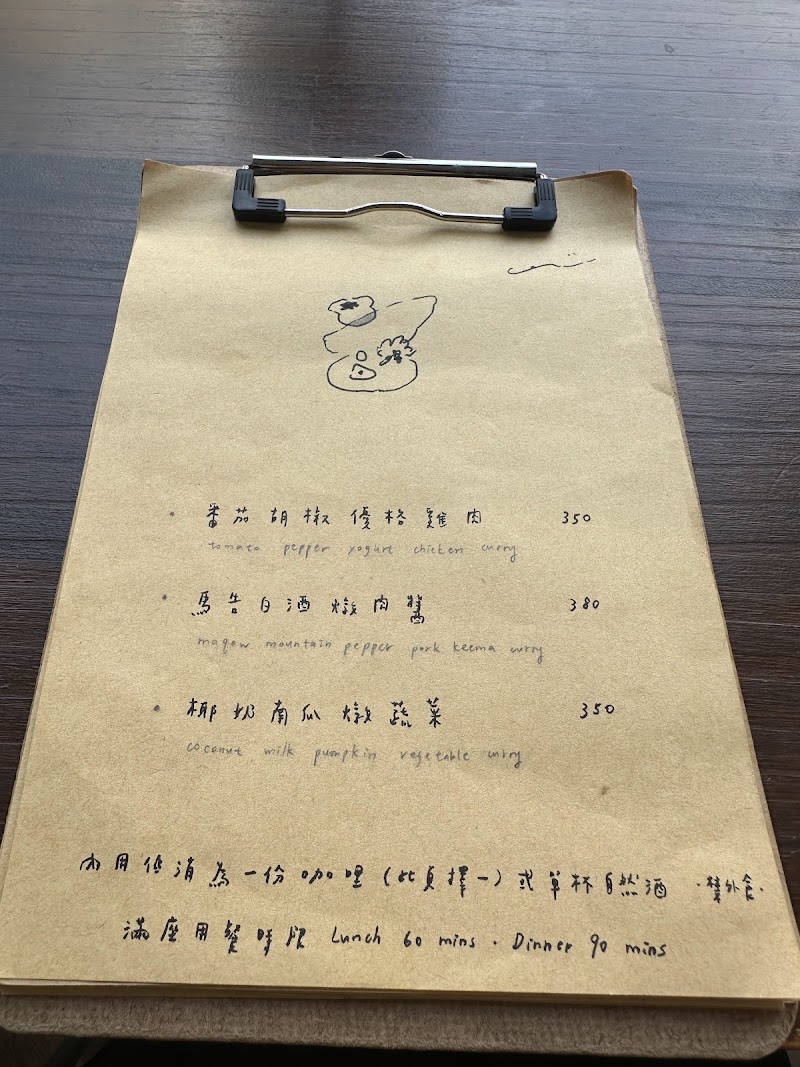 番茄胡椒優格雞肉 350
tomato pepper yogurt chicken curry
馬告白酒燉肉醬 380
maqaw mountain pepper pork keema curry
椰奶南瓜燉蔬菜 350
coconut milk pumpkin vegetable curry
內用低消為一份咖哩（此頁擇一）或單杯自然酒 ·禁外食·
滿座用餐時限 Lunch 60 mins · Dinner 90 mins